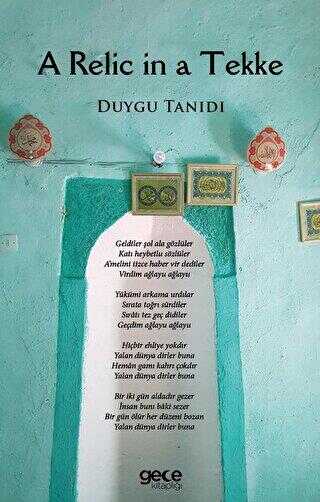 A Relic in a Tekke
DUYGU TANIDI
Geldiler şol ala gözlüler
Katı heybetlu sözlüler
A'melini tizce haber vir dediler
Virdim ağlayu ağlayu
Yükümi arkama urdılar
Sırata toğrı sürdiler
Sıratı tez geç didiler
Geçdim ağlayu ağlayu
Hiçbir ehliye yokdır
Yalan dünya dirler buna
Hemân gamı kahrı çokdır
Yalan dünya dirler buna
Bir iki gün aldadır gezer
İnsan bunı bâki sezer
Bir gün ölür her düzeni bozan
Yalan dünya dirler buna
gece
kitaplığı